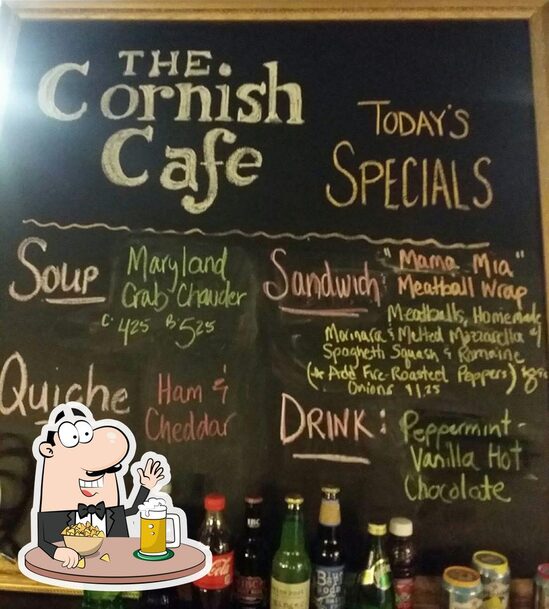 THE
Cornish
Cafe
TODAY'S
SPECIALS
Soup
Maryland
Crab Chowder
C 4.25 B 5.25
Sandwich:
"Mama Mia"
Meatball Wrap
Meatballs, Homemade
Marinara & Melted Mozzarella w/
Spaghetti Squash & Romaine
(* Add Fire-Roasted Peppers)
Onions $1.25
Quiche
Ham &
Cheddar
DRINK:
Peppermint-
Vanilla Hot
Chocolate
Coca-Cola
IBC